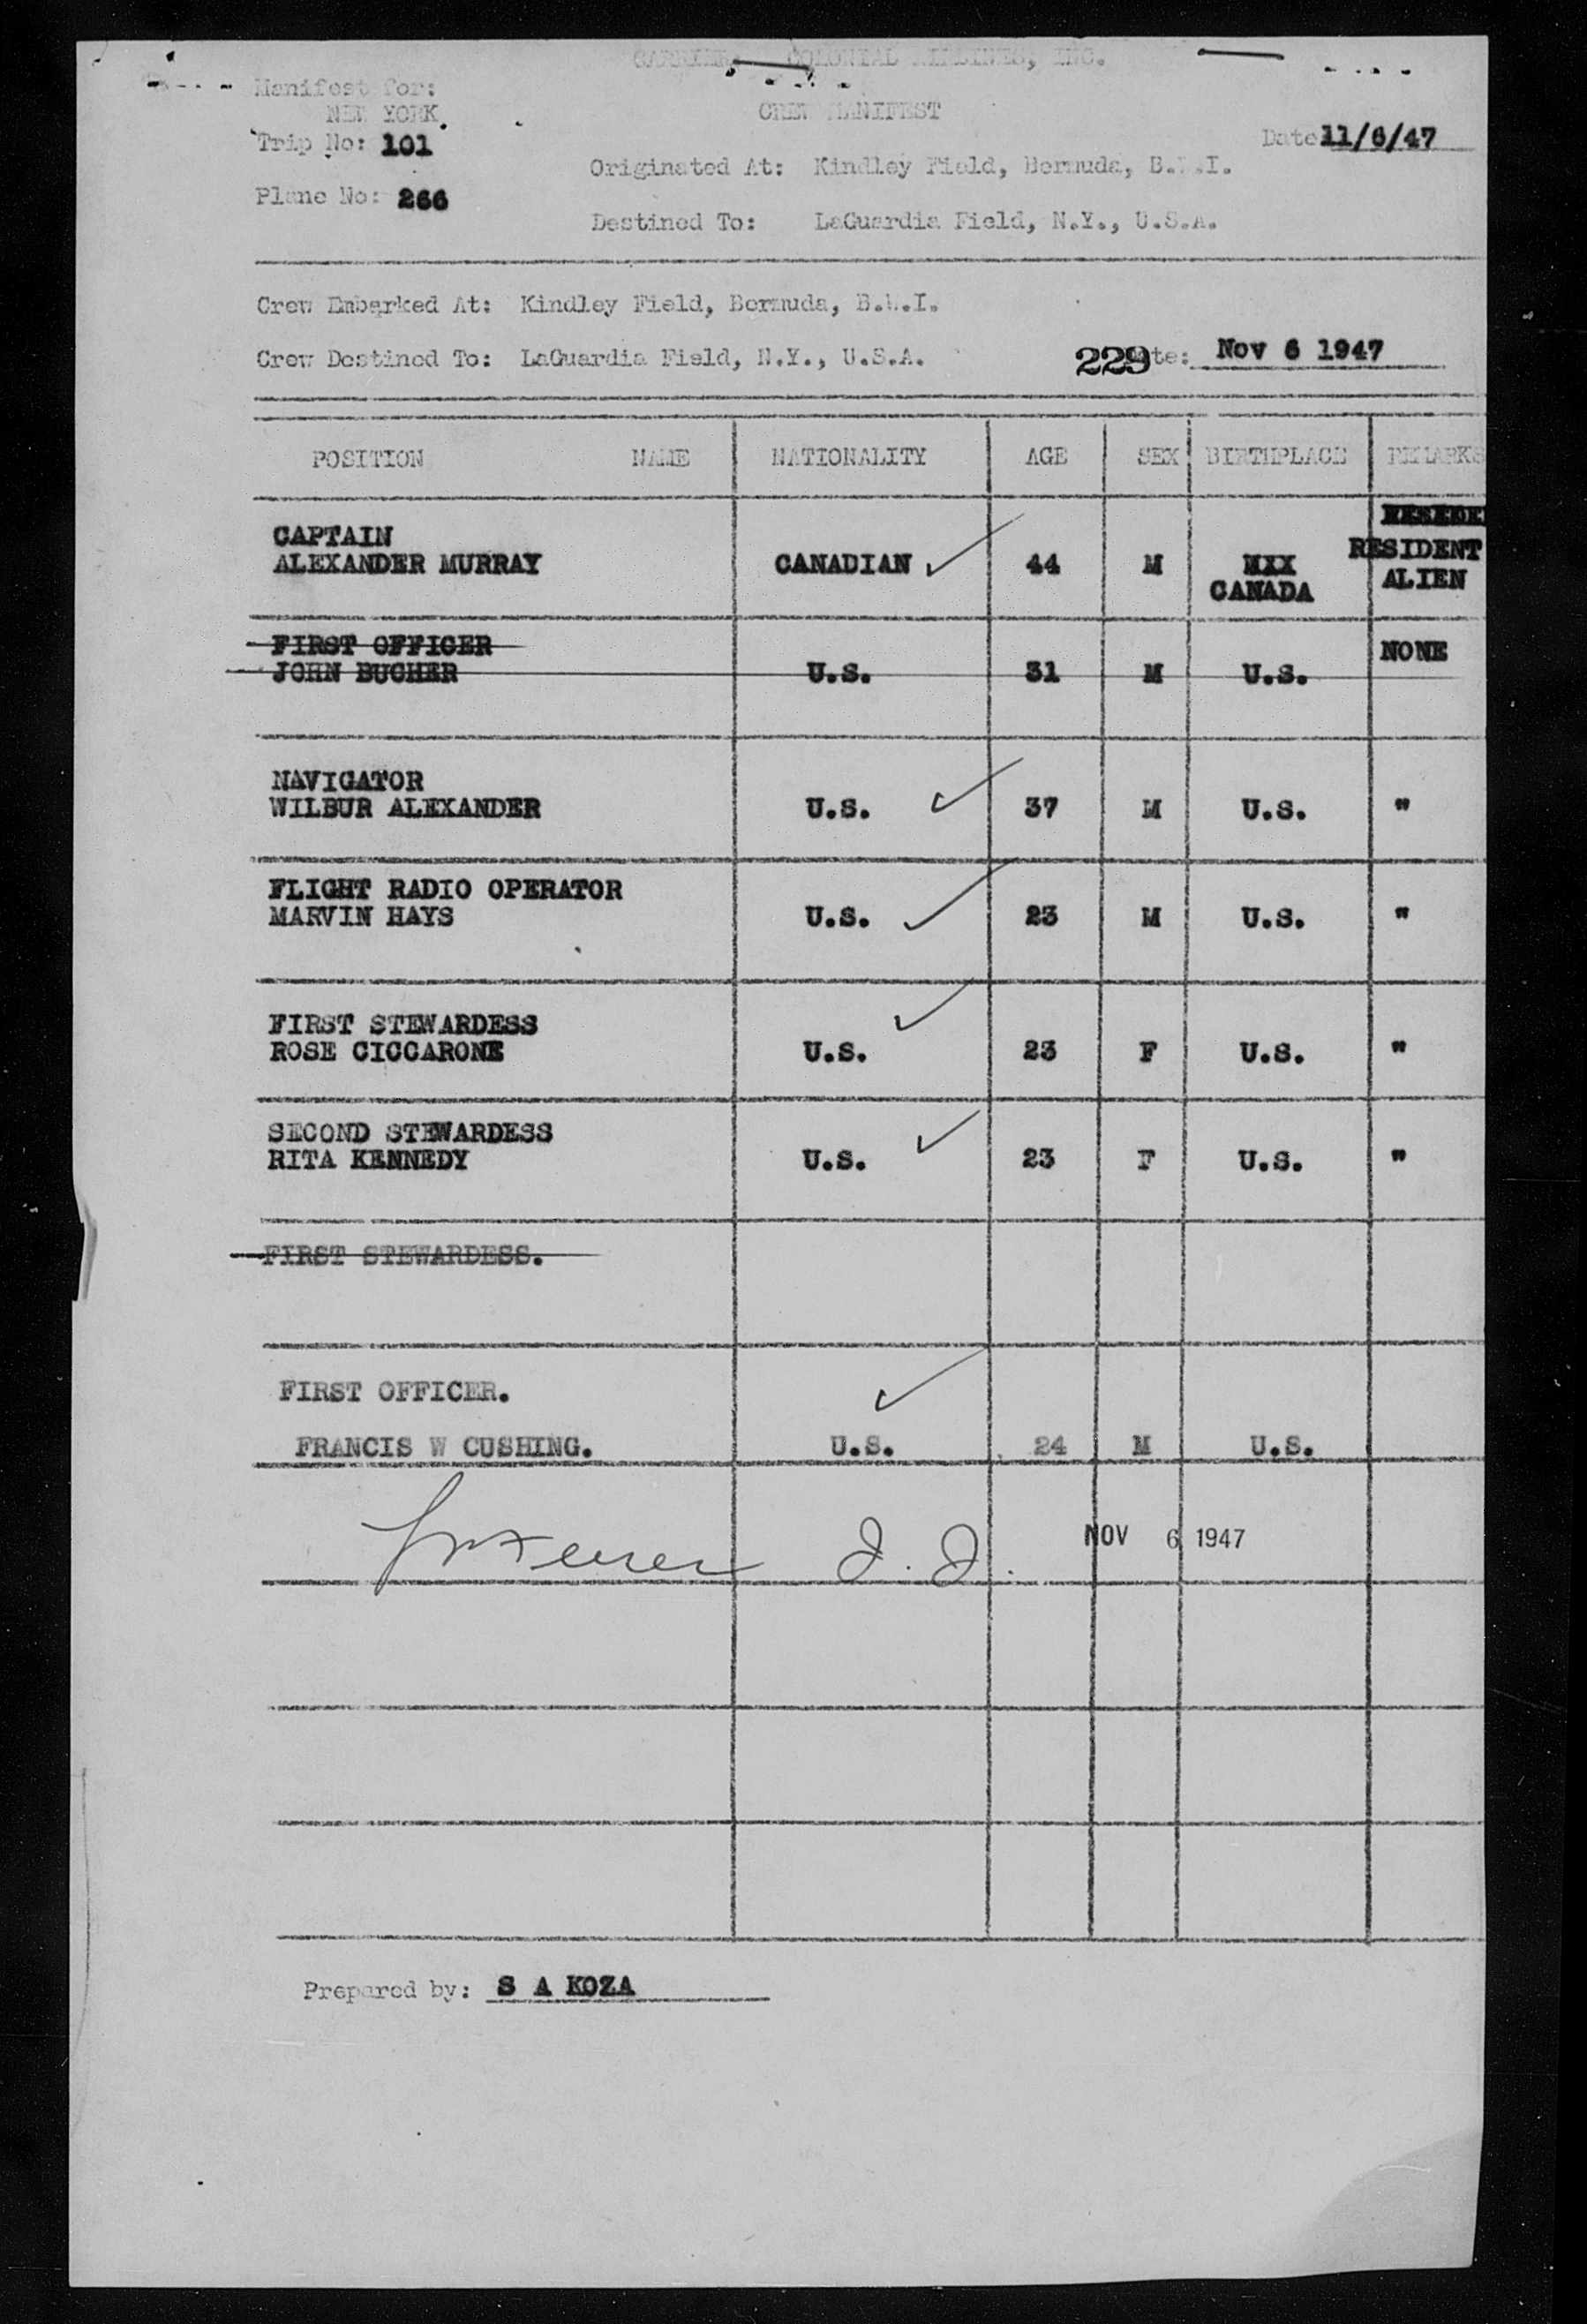 CARRIER: COLONIAL AIRLINES, INC.
Manifest for:
NEW YORK
CREW MANIFEST
Trip No: 101
Date 11/6/47
Originated At: Kindley Field, Bermuda, B.W.I.
Plane No: 266
Destined To: LaGuardia Field, N.Y., U.S.A.
Crew Embarked At: Kindley Field, Bermuda, B.W.I.
Crew Destined To: LaGuardia Field, N.Y., U.S.A. 229 te: Nov 6 1947
POSITION NAME NATIONALITY AGE SEX BIRTHPLACE REMARKS
CAPTAIN
RESIDENT
ALEXANDER MURRAY CANADIAN 44 M MXX
ALIEN
CANADA
FIRST OFFICER
NONE
JOHN BUCHER U.S. 31 M U.S.
NAVIGATOR
WILBUR ALEXANDER U.S. 37 M U.S. "
FLIGHT RADIO OPERATOR
MARVIN HAYS U.S. 23 M U.S. "
FIRST STEWARDESS
ROSE CICCARONE U.S. 23 F U.S. "
SECOND STEWARDESS
RITA KENNEDY U.S. 23 F U.S. "
FIRST STEWARDESS.
FIRST OFFICER.
FRANCIS W CUSHING. U.S. 24 M U.S.
NOV 6 1947
Prepared by: S A KOZA